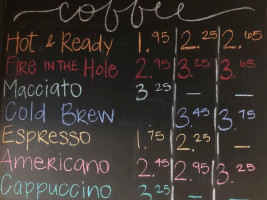 coffee
Hot & Ready 1.95 2.25 2.65
Fire in the Hole 2.95 3.25 3.65
Macciato 3.25 — —
Cold Brew 3.45 3.75
Espresso 1.75 2.25 —
Americano 2.45 2.95 3.25
Cappuccino 3.25 — —